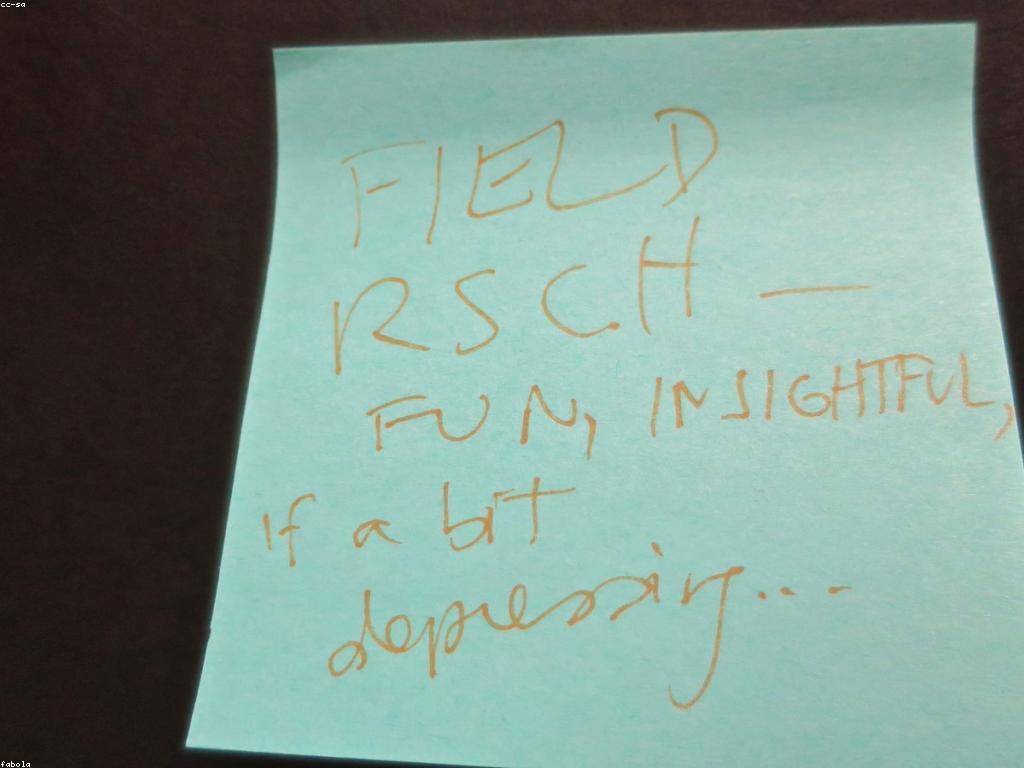 cc-sa
FIELD
RSCH —
FUN, INSIGHTFUL,
If a bit
depressing...
fabola